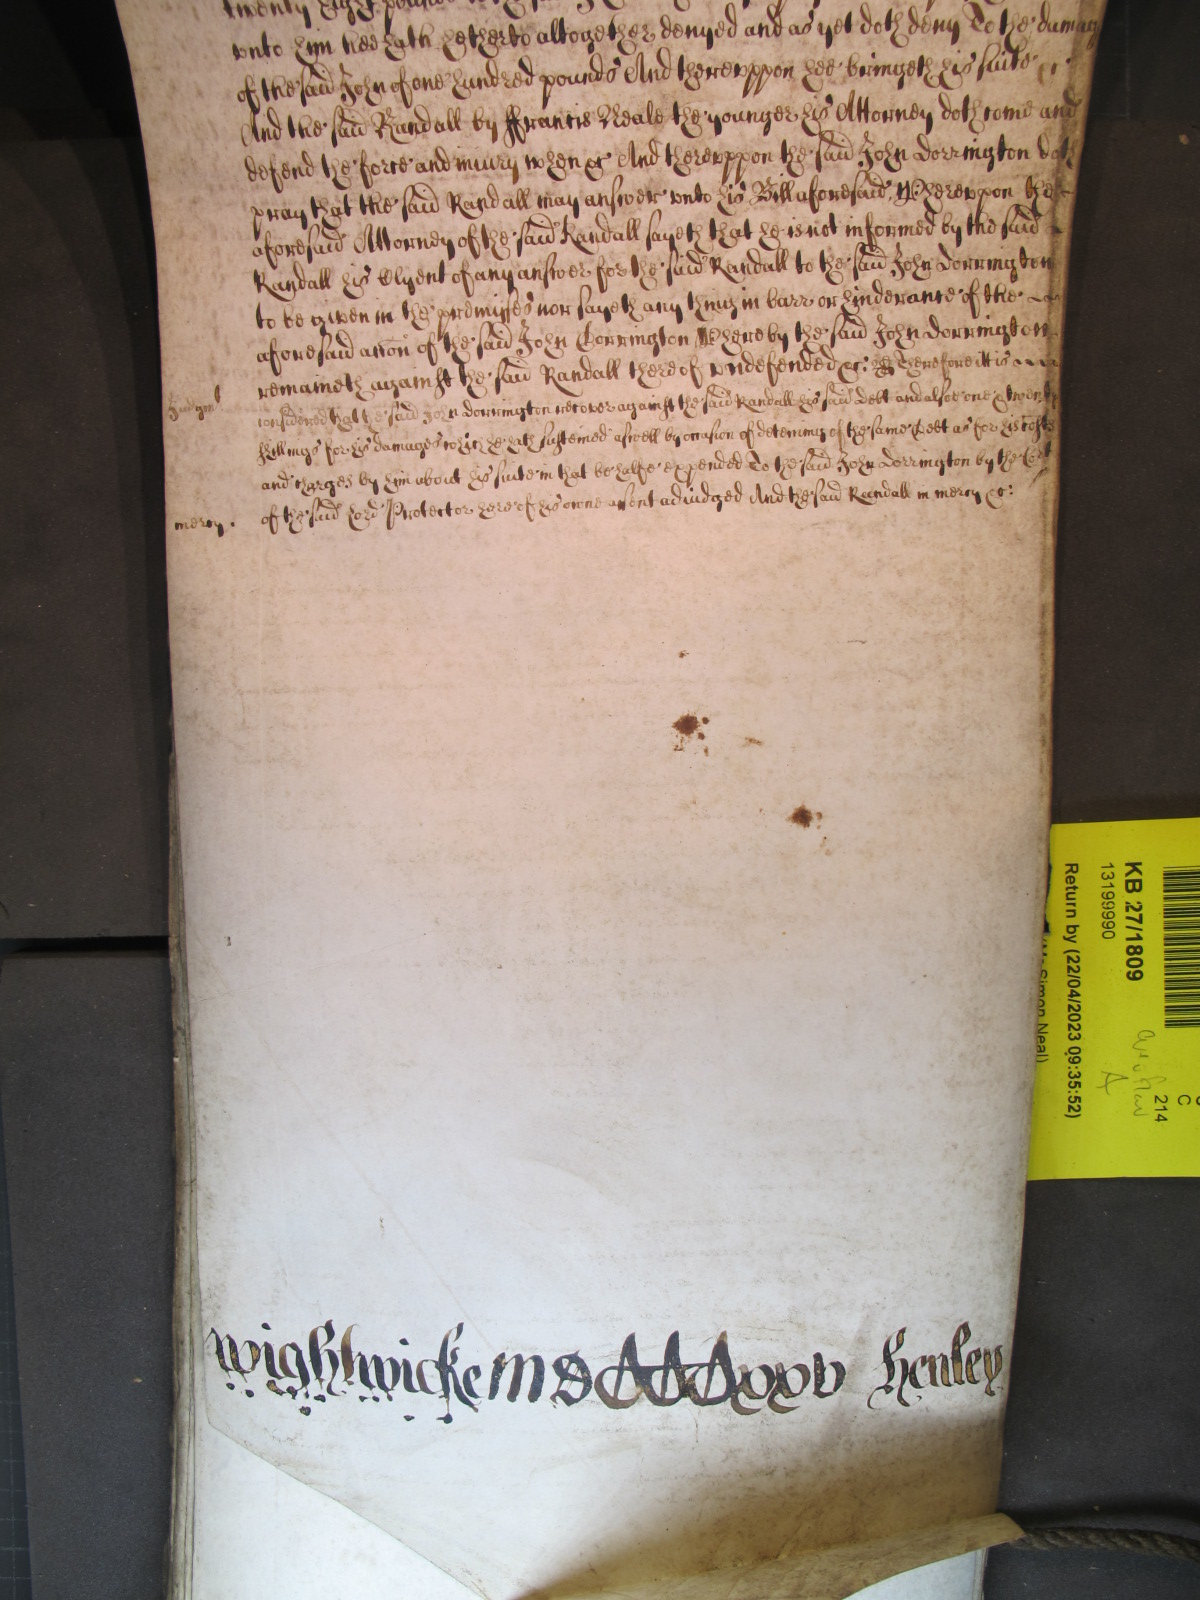 twenty eight pounds
vnto him hee hath hetherto altogether denyed and as yet doth deny To the damage
of the said John of one hundred pounds And therevppon hee bringeth his suite
And the said Randall by Ffrancis Neale the younger his Attorney doth come and
defend the force and iniury when &c And therevppon the said John Dorrington doth
pray that the said Randall may answer vnto his Bill aforesaid, Wherevpon the
aforesaid Attorney of the said Randall sayeth that he is not informed by the said
Randall his Clyent of any answer for the said Randall to the said John Dorrington
to be given in the premisses nor sayeth any thing in barr or hinderance of the
aforesaid accon of the said John Dorrington Whereby the said John Dorrington
remaineth against the said Randall thereof vndefended &c: Therefore it is
Judgmt considered that the said John Dorrington recover against the said Randall his said Debt and alsoe one & twenty
shillings for his damages which he hath susteined aswell by occasion of deteining of the same Debt as for his costs
and charges by him about his suite in that behalfe expended To the said John Dorrington by the Cort
mercy. of the said Lord Protector here of his owne assent adiudged And the said Randall in mercy &c:
KB 27/1809
13199990
Return by (22/04/2023 09:35:52)
(Mr Simon Neal)
214
C
A
Wightwicke MDCCCxxv Henley